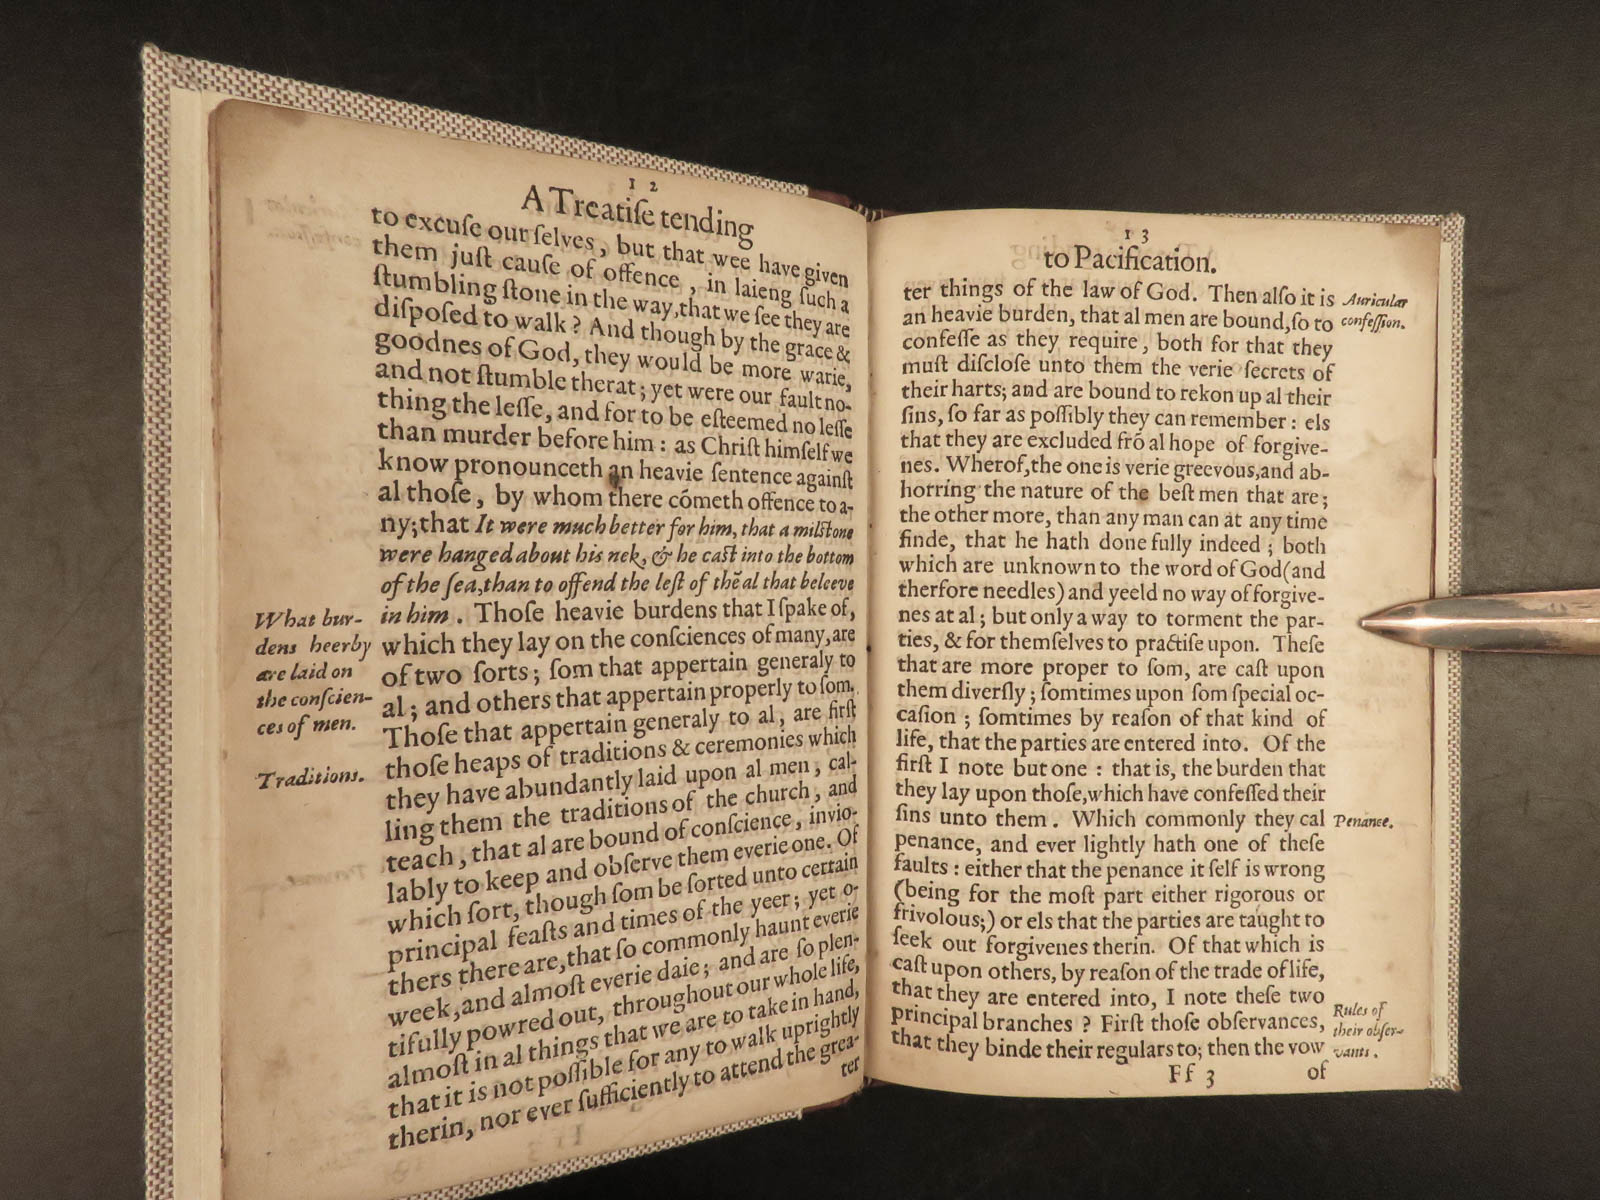 12
A Treatiſe tending
to excuſe our ſelves, but that wee have given
them juſt cauſe of offence, in laieng ſuch a
ſtumbling ſtone in the way, that we ſee they are
diſpoſed to walk? And though by the grace &
goodnes of God, they would be more warie,
and not ſtumble therat; yet were our fault no-
thing the leſſe, and for to be eſteemed no leſſe
than murder before him: as Chriſt himſelf we
know pronounceth an heavie ſentence againſt
al thoſe, by whom there cōmeth offence to a-
ny; that It were much better for him, that a milſtone
were hanged about his nek, & he caſt into the bottom
of the ſea, than to offend the leſt of thē al that beleeve
in him. Thoſe heavie burdens that I ſpake of,
which they lay on the conſciences of many, are
of two ſorts; ſom that appertain generaly to
al; and others that appertain properly to ſom.
Thoſe that appertain generaly to al, are firſt
thoſe heaps of traditions & ceremonies which
they have abundantly laid upon al men, cal-
ling them the traditions of the church, and
teach, that al are bound of conſcience, invio-
lably to keep and obſerve them everie one. Of
which ſort, though ſom be ſorted unto certain
principal feaſts and times of the yeer; yet o-
thers there are, that ſo commonly haunt everie
week, and almoſt everie daie; and are ſo plen-
tifully powred out, throughout our whole life,
almoſt in al things that we are to take in hand,
that it is not poſſible for any to walk uprightly
therin, nor ever ſufficiently to attend the grea-
ter
What bur-
dens heerby
are laid on
the conſcien-
ces of men.
Traditions.
13
to Pacification.
ter things of the law of God. Then alſo it is
an heavie burden, that al men are bound, ſo to
confeſſe as they require, both for that they
muſt diſcloſe unto them the verie ſecrets of
their harts; and are bound to rekon up al their
ſins, ſo far as poſſibly they can remember: els
that they are excluded frō al hope of forgive-
nes. Wherof, the one is verie greevous, and ab-
horring the nature of the beſt men that are;
the other more, than any man can at any time
finde, that he hath done fully indeed; both
which are unknown to the word of God (and
therfore needles) and yeeld no way of forgive-
nes at al; but only a way to torment the par-
ties, & for themſelves to practiſe upon. Theſe
that are more proper to ſom, are caſt upon
them diverſly; ſomtimes upon ſom ſpecial oc-
caſion; ſomtimes by reaſon of that kind of
life, that the parties are entered into. Of the
firſt I note but one: that is, the burden that
they lay upon thoſe, which have confeſſed their
ſins unto them. Which commonly they cal
penance, and ever lightly hath one of theſe
faults: either that the penance it ſelf is wrong
(being for the moſt part either rigorous or
frivolous;) or els that the parties are taught to
ſeek out forgivenes therin. Of that which is
caſt upon others, by reaſon of the trade of life,
that they are entered into, I note theſe two
principal branches? Firſt thoſe obſervances,
that they binde their regulars to; then the vow
Ff 3 of
Auricular
confeſſion.
Penance.
Rules of
their obſer-
vants.